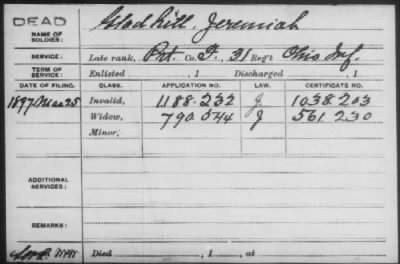 DEAD
NAME OF SOLDIER: Gladhill, Jeremiah
SERVICE: Late rank, Prt. Co. F, 31 Reg't Ohio Inf.
TERM OF SERVICE: Enlisted , 1 Discharged , 1
DATE OF FILING. CLASS. APPLICATION NO. LAW. CERTIFICATE NO.
1897 Mar 25 Invalid, 1188.232 J. 1038.203
Widow, 790.544 J 561.230
Minor,
ADDITIONAL SERVICES:
REMARKS:
Died , 1 , at